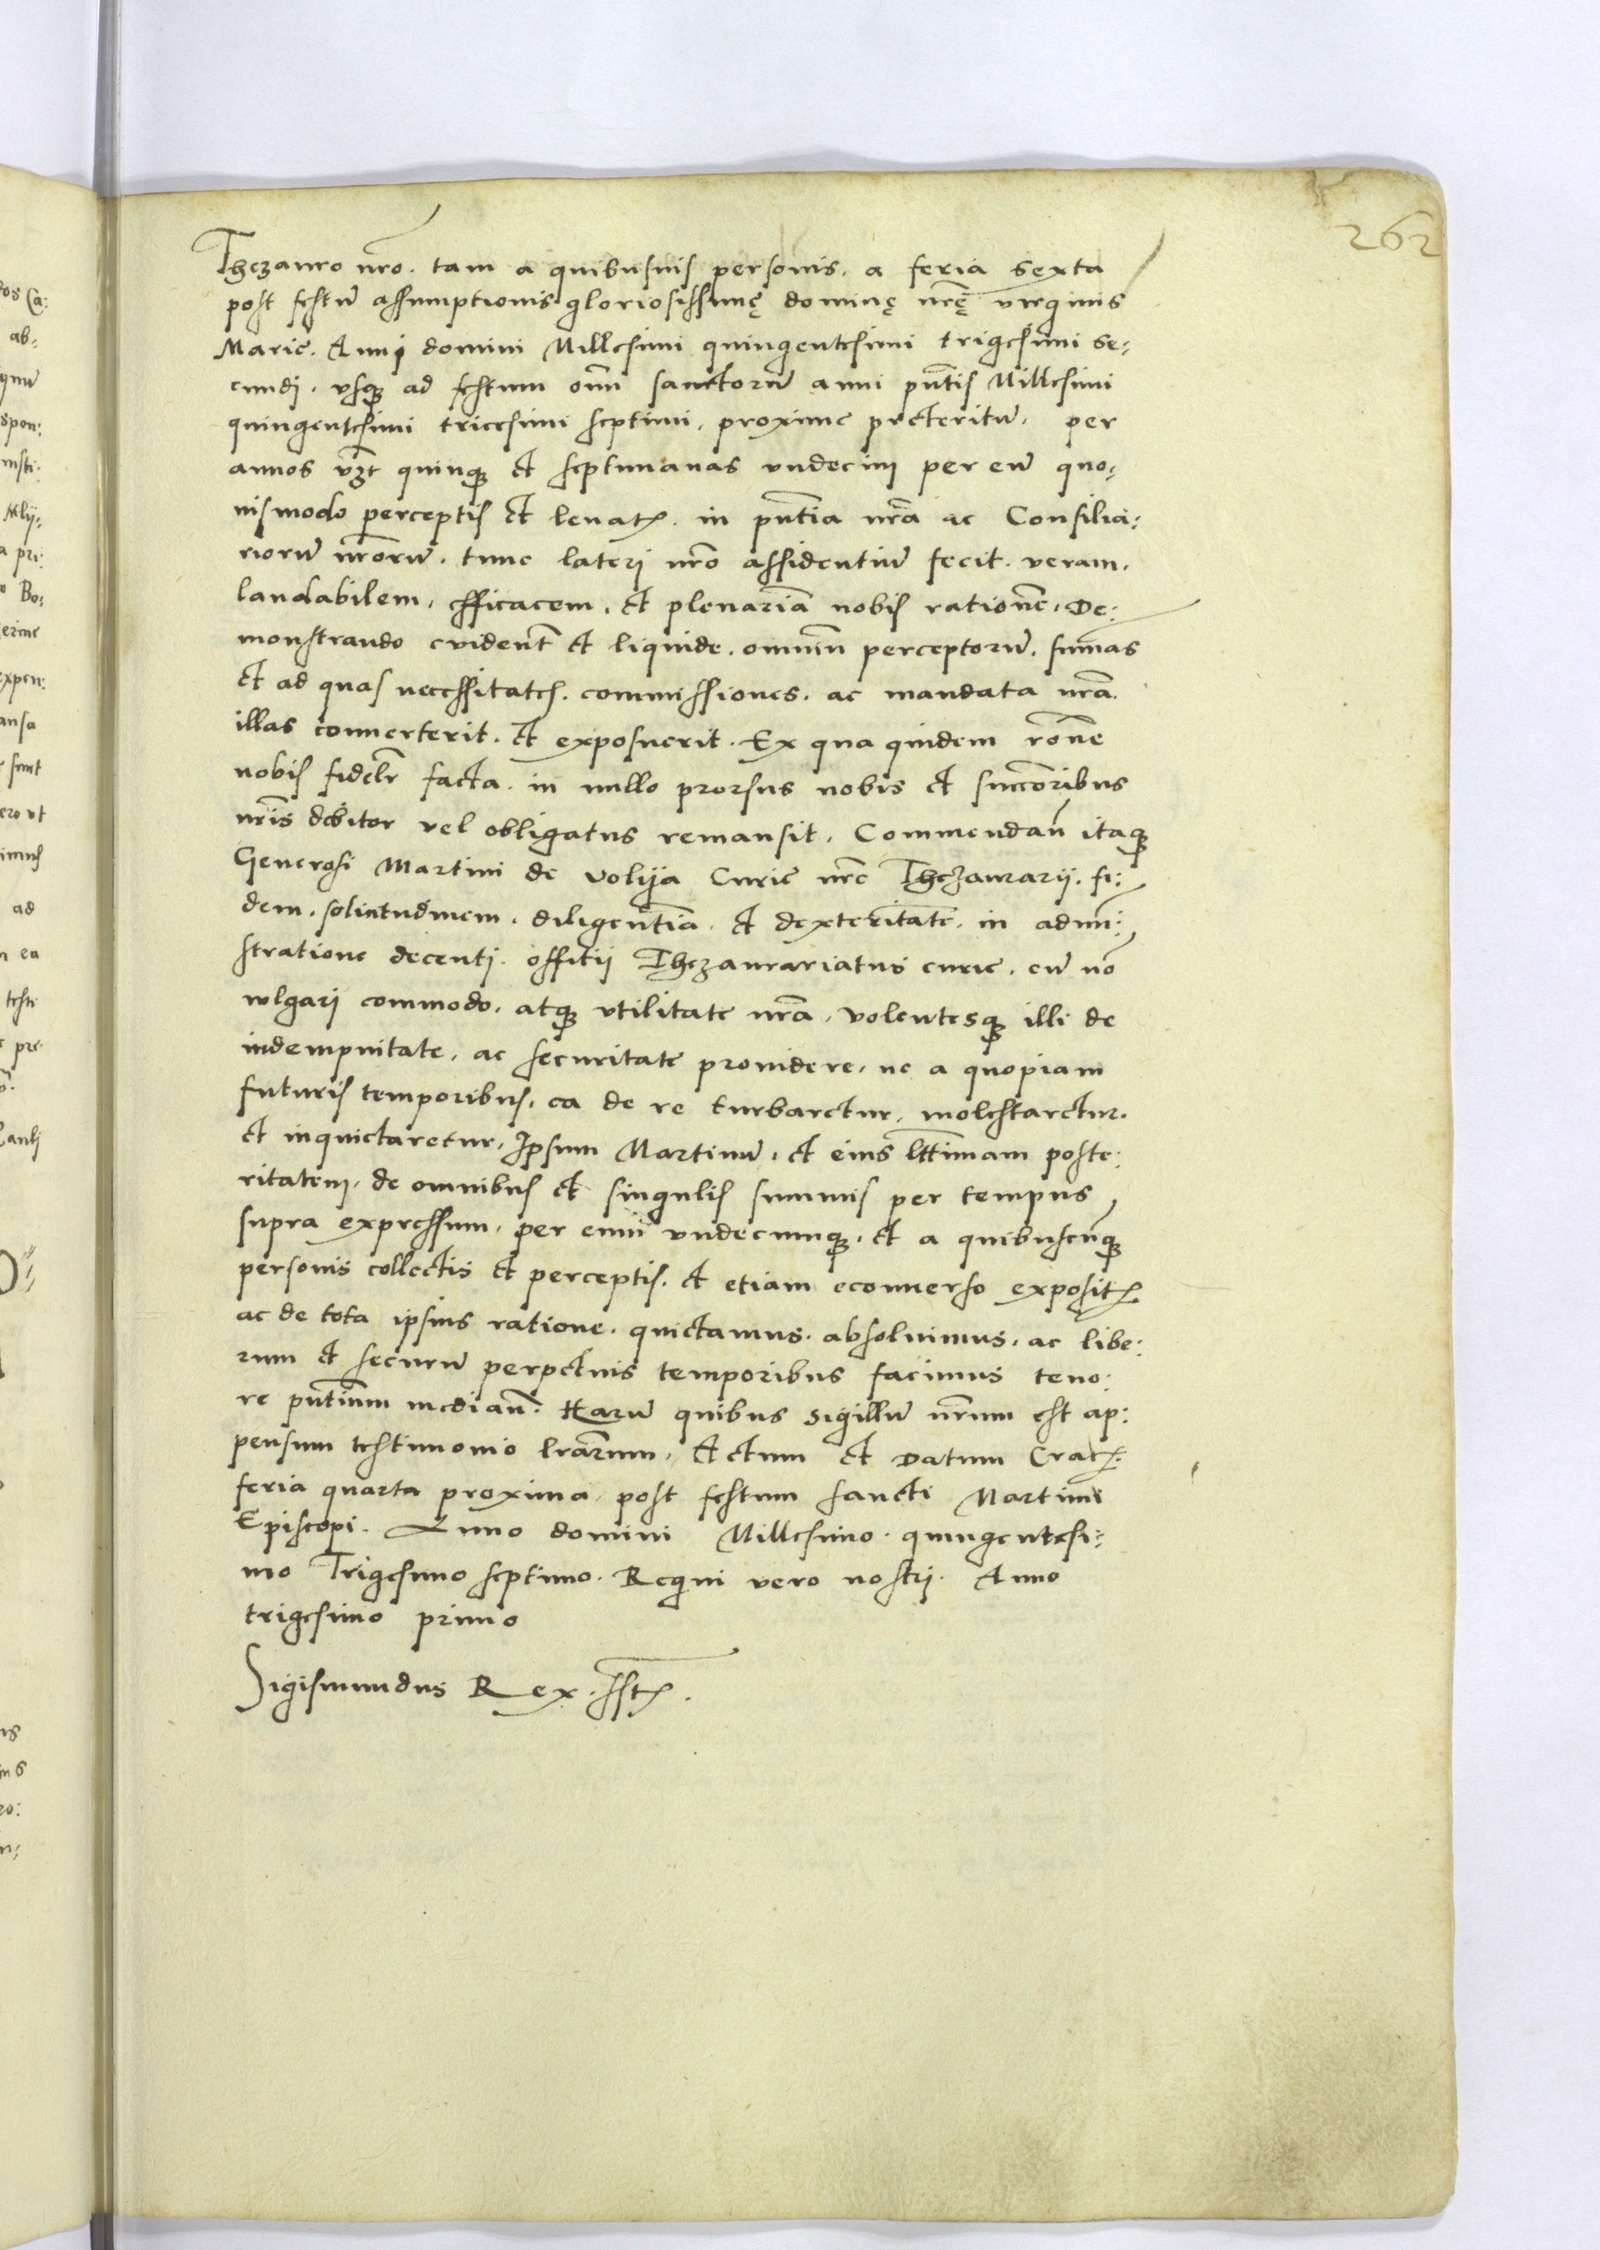 262
Thezauro nro. tam a quibusuis personis. a feria sexta
post festū assumptionis gloriosissimę dominę nrę̄ virginis
Marie. Anni domini Millesimi quingentesimi trigesimi se:
cundi. vsqꝫ ad festum oīm sanctorū anni pn̄tis Millesimi
quingentesimi tricesimi septimi. proxime preteritū. per
annos vꝫt quinqꝫ et septimanas vndecim per eū quo:
uismodo perceptis et leuatꝭ. in pn̄tia nrā ac Consilia:
riorū nrōrū. tunc lateri nrō assidentiū fecit. veram.
laudabilem, efficacem, et plenariā nobis rationē, De:
monstrando euident̄ et liquide. omniū perceptorū. sum̄as
et ad quas necessitates. commissiones. ac mandata nrā.
illas conuerterit. et exposuerit. Ex qua quidem rōne
nobis fidelr̄ facta. in nullo prorsus nobis et succōribus
nrīs debitor vel obligatus remansit. Commendan̄ itaqꝫ
Generosi Martini de Volija Curie nrē Thezaurarij. fi:
dem. solicitudinem. diligentiā. et dexteritatē. in admi:
stratione decenti. offitii Thezaurariatus curie. cū nō
wlgari commodo. atqꝫ vtilitate nrā. volentesqꝫ illi de
indempnitate. ac securitate prouidere. ne a quopiam
futuris temporibus. ea de re turbaretur. molestaretur.
et inquietaretur. Ipsum Martinū. et eius lt̄timam poste:
ritatem. de omnibus et singulis summis per tempus
supra expressum. per eum vndecunqꝫ. et a quibuscūqꝫ
personis collectis et perceptis. et etiam econuerso expositꝭ
ac de tota ipsius ratione. quictamus. absoluimus. ac libe:
rum et securū perpetuis temporibus facimus teno:
re pn̄tium median̄. Harū quibus sigillū nrūm est ap:
pensum testimonio lrārum, Actum et Datum Cracꝭ.
feria quarta proxima post festum sancti Martini
Episcopi. Anno domini Millesimo. quingentesi:
mo Trigesimo septimo. Regni vero nostri. Anno
trigesimo primo
Sigismundus Rex. sstꝭ.